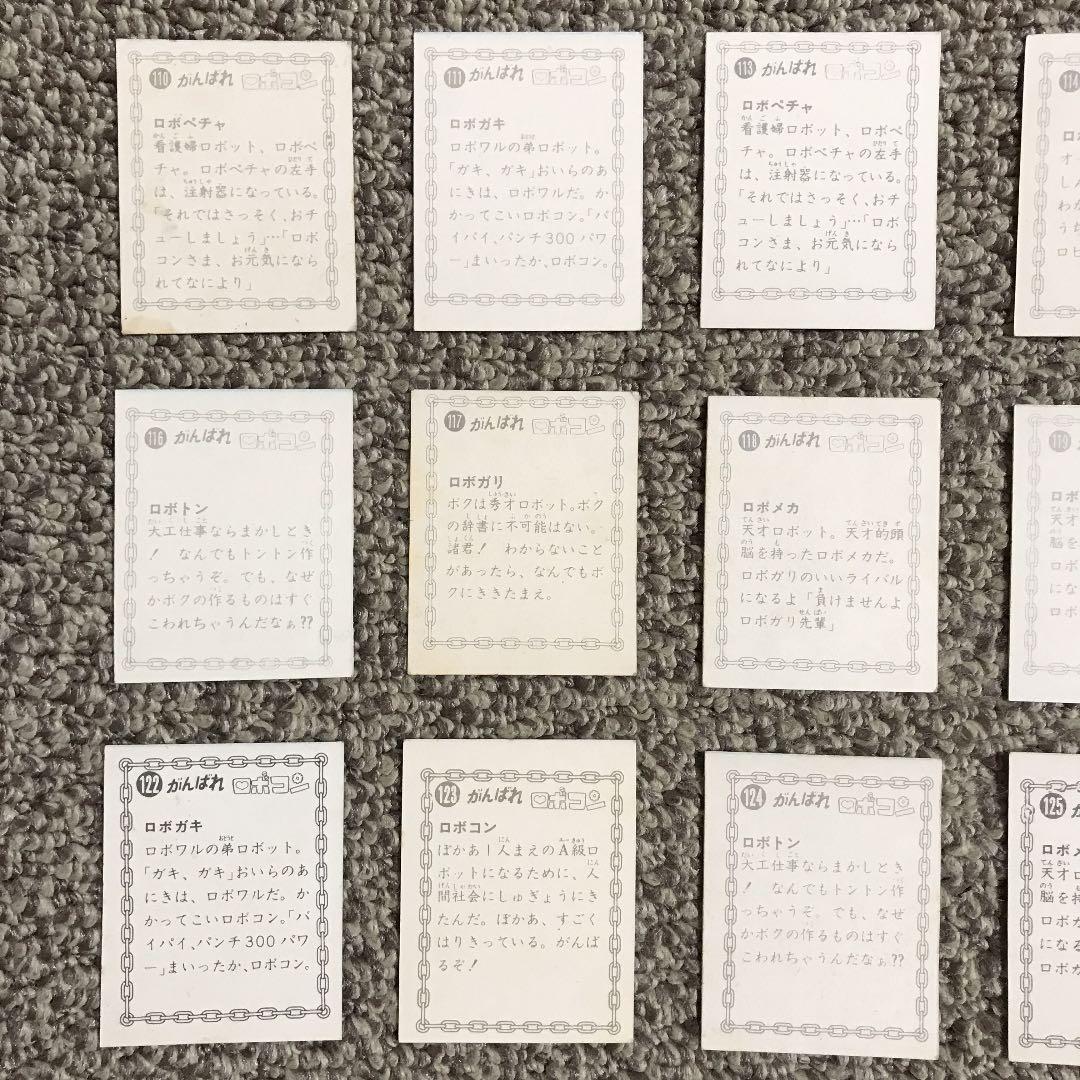 110 がんばれ ロボコン
ロボペチャ
看護婦ロボット、ロボペ
チャ。ロボペチャの左手
は、注射器になっている。
「それではさっそく、おチ
ューしましょう」…「ロボ
コンさま、お元気になら
れてなにより」
111 がんばれ ロボコン
ロボガキ
ロボワルの弟ロボット。
「ガキ、ガキ」おいらのあ
にきは、ロボワルだ。か
かってこいロボコン。「パ
イパイ、パンチ300パワ
ー」まいったか、ロボコン。
113 がんばれ ロボコン
ロボペチャ
看護婦ロボット、ロボペ
チャ。ロボペチャの左手
は、注射器になっている。
「それではさっそく、おチ
ューしましょう」…「ロボ
コンさま、お元気になら
れてなにより」
114
116 がんばれ ロボコン
ロボトン
大工仕事ならまかしとき
! なんでもトントン作
っちゃうぞ。でも、なぜ
かボクの作るものはすぐ
こわれちゃうんだなぁ??
117 がんばれ ロボコン
ロボガリ
ボクは秀才ロボット。ボク
の辞書に不可能はない。
諸君! わからないこと
があったら、なんでもボ
クにききたまえ。
118 がんばれ ロボコン
ロボメカ
天才ロボット。天才的頭
脳を持ったロボメカだ。
ロボガリのいいライバル
になるよ「負けませんよ
ロボガリ先輩」
119
ロボ
天才
脳を
ロボ
にな
ロボ
122 がんばれ ロボコン
ロボガキ
ロボワルの弟ロボット。
「ガキ、ガキ」おいらのあ
にきは、ロボワルだ。か
かってこいロボコン。「パ
イパイ、パンチ300パワ
ー」まいったか、ロボコン。
123 がんばれ ロボコン
ロボコン
ぼかあ1人まえのA級ロ
ボットになるために、人
間社会にしゅぎょうにき
たんだ。ぼかあ、すごく
はりきっている。がんば
るぞ!
124 がんばれ ロボコン
ロボトン
大工仕事ならまかしとき
! なんでもトントン作
っちゃうぞ。でも、なぜ
かボクの作るものはすぐ
こわれちゃうんだなぁ??
125 が
ロボメ
天才ロ
脳を持
ロボガ
になる
ロボガ